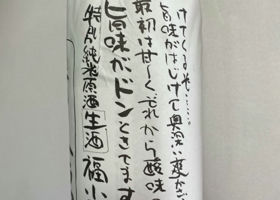 けてくるぞ……
旨味がはじけて奥深い変
最初は甘〜くそれから酸味
旨味がドンときてます
特別純米原酒 生酒 福小